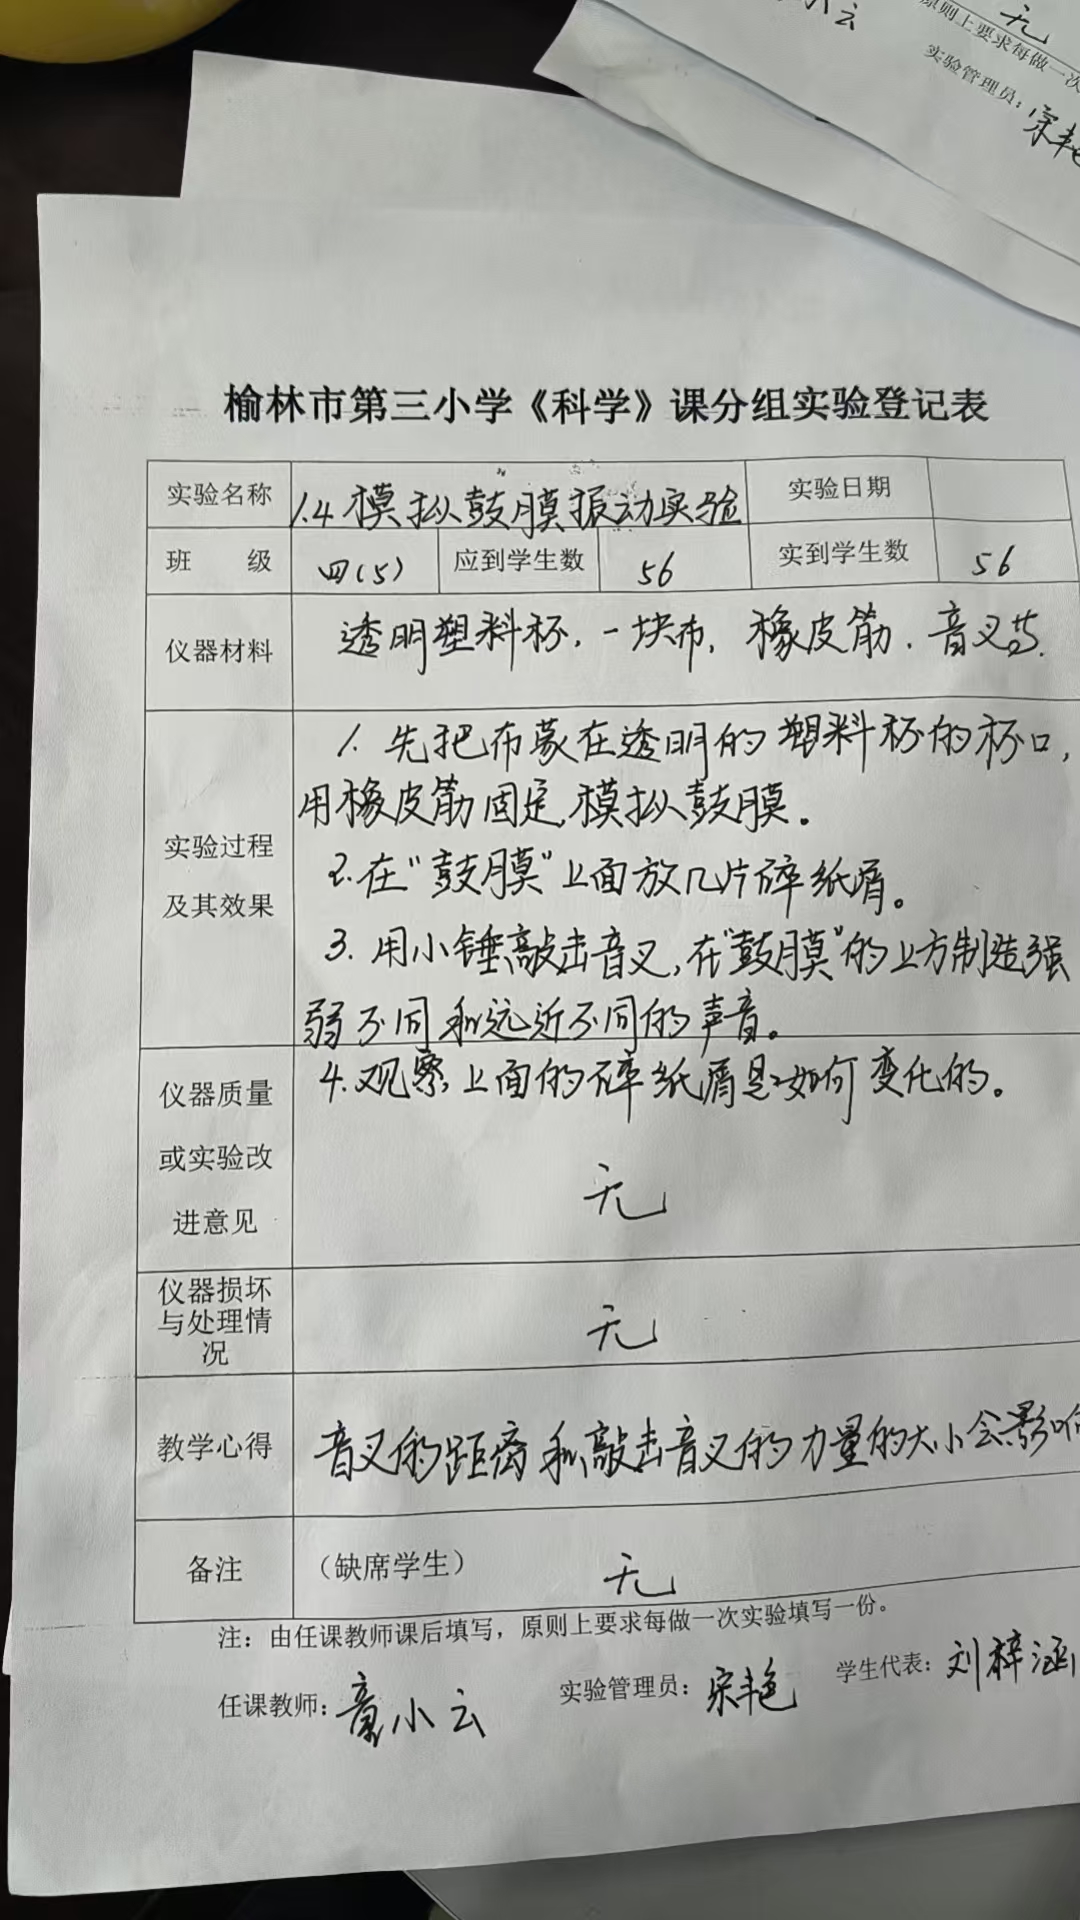 小云
无
原则上要求每做一次
实验管理员：宋艳
榆林市第三小学《科学》课分组实验登记表
实验名称 1.4 模拟鼓膜振动实验 实验日期
班 级 四(5) 应到学生数 56 实到学生数 56
仪器材料 透明塑料杯，一块布，橡皮筋．音叉等．
1. 先把布蒙在透明的塑料杯的杯口，
用橡皮筋固定,模拟鼓膜。
实验过程
及其效果
2.在“鼓膜”上面放几片碎纸屑。
3. 用小锤敲击音叉,在“鼓膜”的上方制造强
弱不同和远近不同的声音。
4.观察上面的碎纸屑是如何变化的。
仪器质量
或实验改
进意见
无
仪器损坏
与处理情
况
无
教学心得 音叉的距离和敲击音叉的力量的大小会影响
备注 （缺席学生） 无
注：由任课教师课后填写，原则上要求每做一次实验填写一份。
任课教师: 童小云 实验管理员: 宋艳 学生代表: 刘梓涵